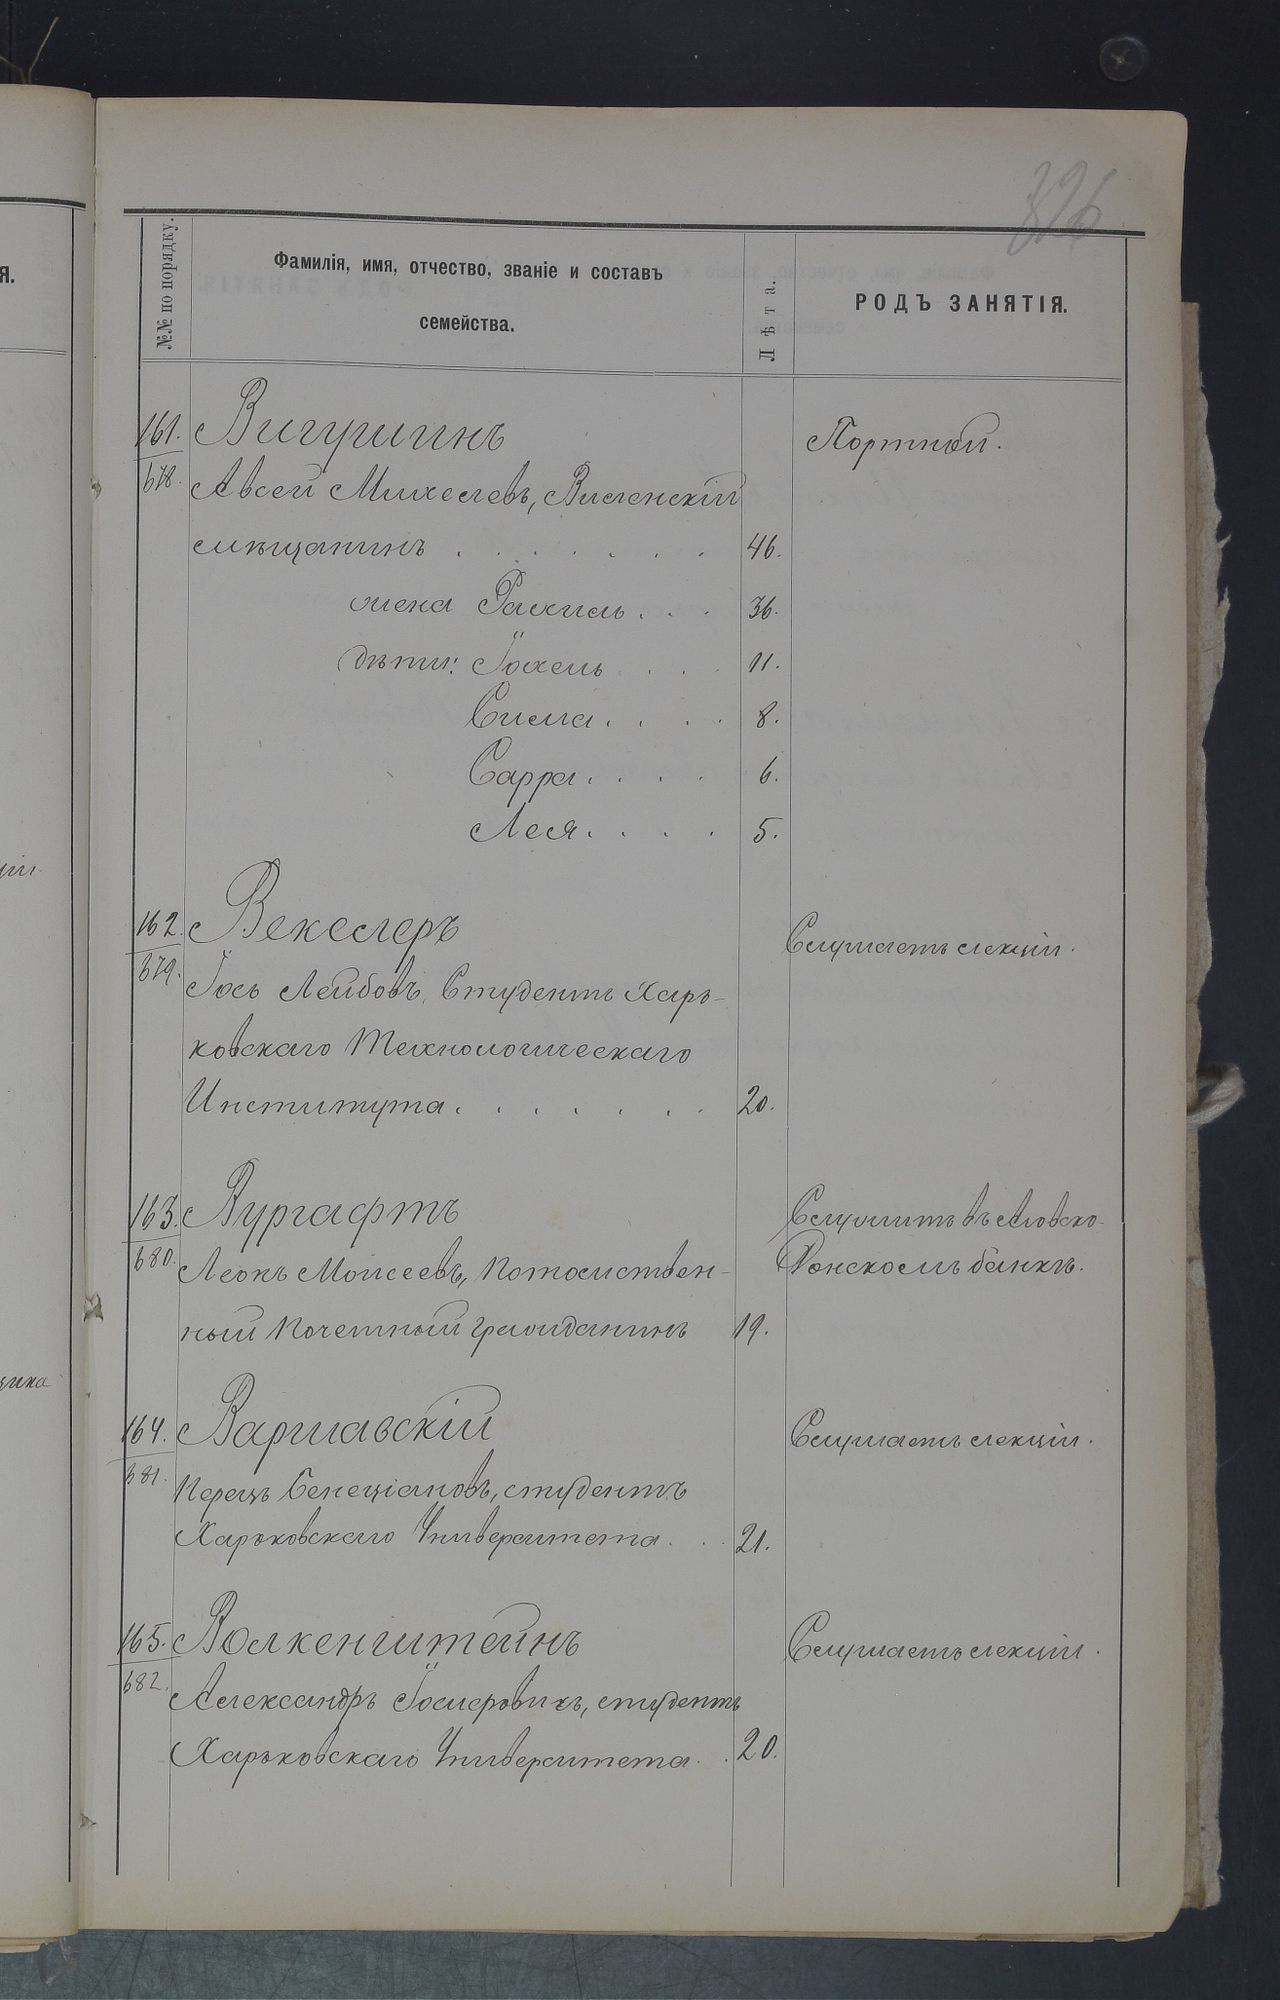 326
№№ по порядку.
Фамилія, имя, отчество, званіе и составъ
семейства.
Лѣта.
РОДЪ ЗАНЯТІЯ.
161. Вигушинъ Портной.
678. Авсей Михелевъ, Виленскій
мѣщанинъ . . . . . . . 46.
жена Рахиль . . . 36.
дѣти: Іохель . . . . 11.
Сима . . . . 8.
Сарра . . . . 6.
Лея . . . . 5.
162. Векслеръ Слушаетъ лекціи.
679. Іось Лейбовъ, Студентъ Харь-
ковскаго Технологическаго
Института . . . . . . . 20.
163. Вургафтъ Служитъ въ Азовско-
680. Леонъ Моисеевъ, Потомствен- Донскомъ банкѣ.
ный Почетный Гражданинъ 19.
164. Варшавскій Слушаетъ лекціи.
681. Перецъ Бенеціановъ, студентъ
Харьковскаго Университета . . . 21.
165. Волкенштейнъ Слушаетъ лекціи.
682. Александръ Іосифовичъ, студентъ
Харьковскаго Университета . . 20.